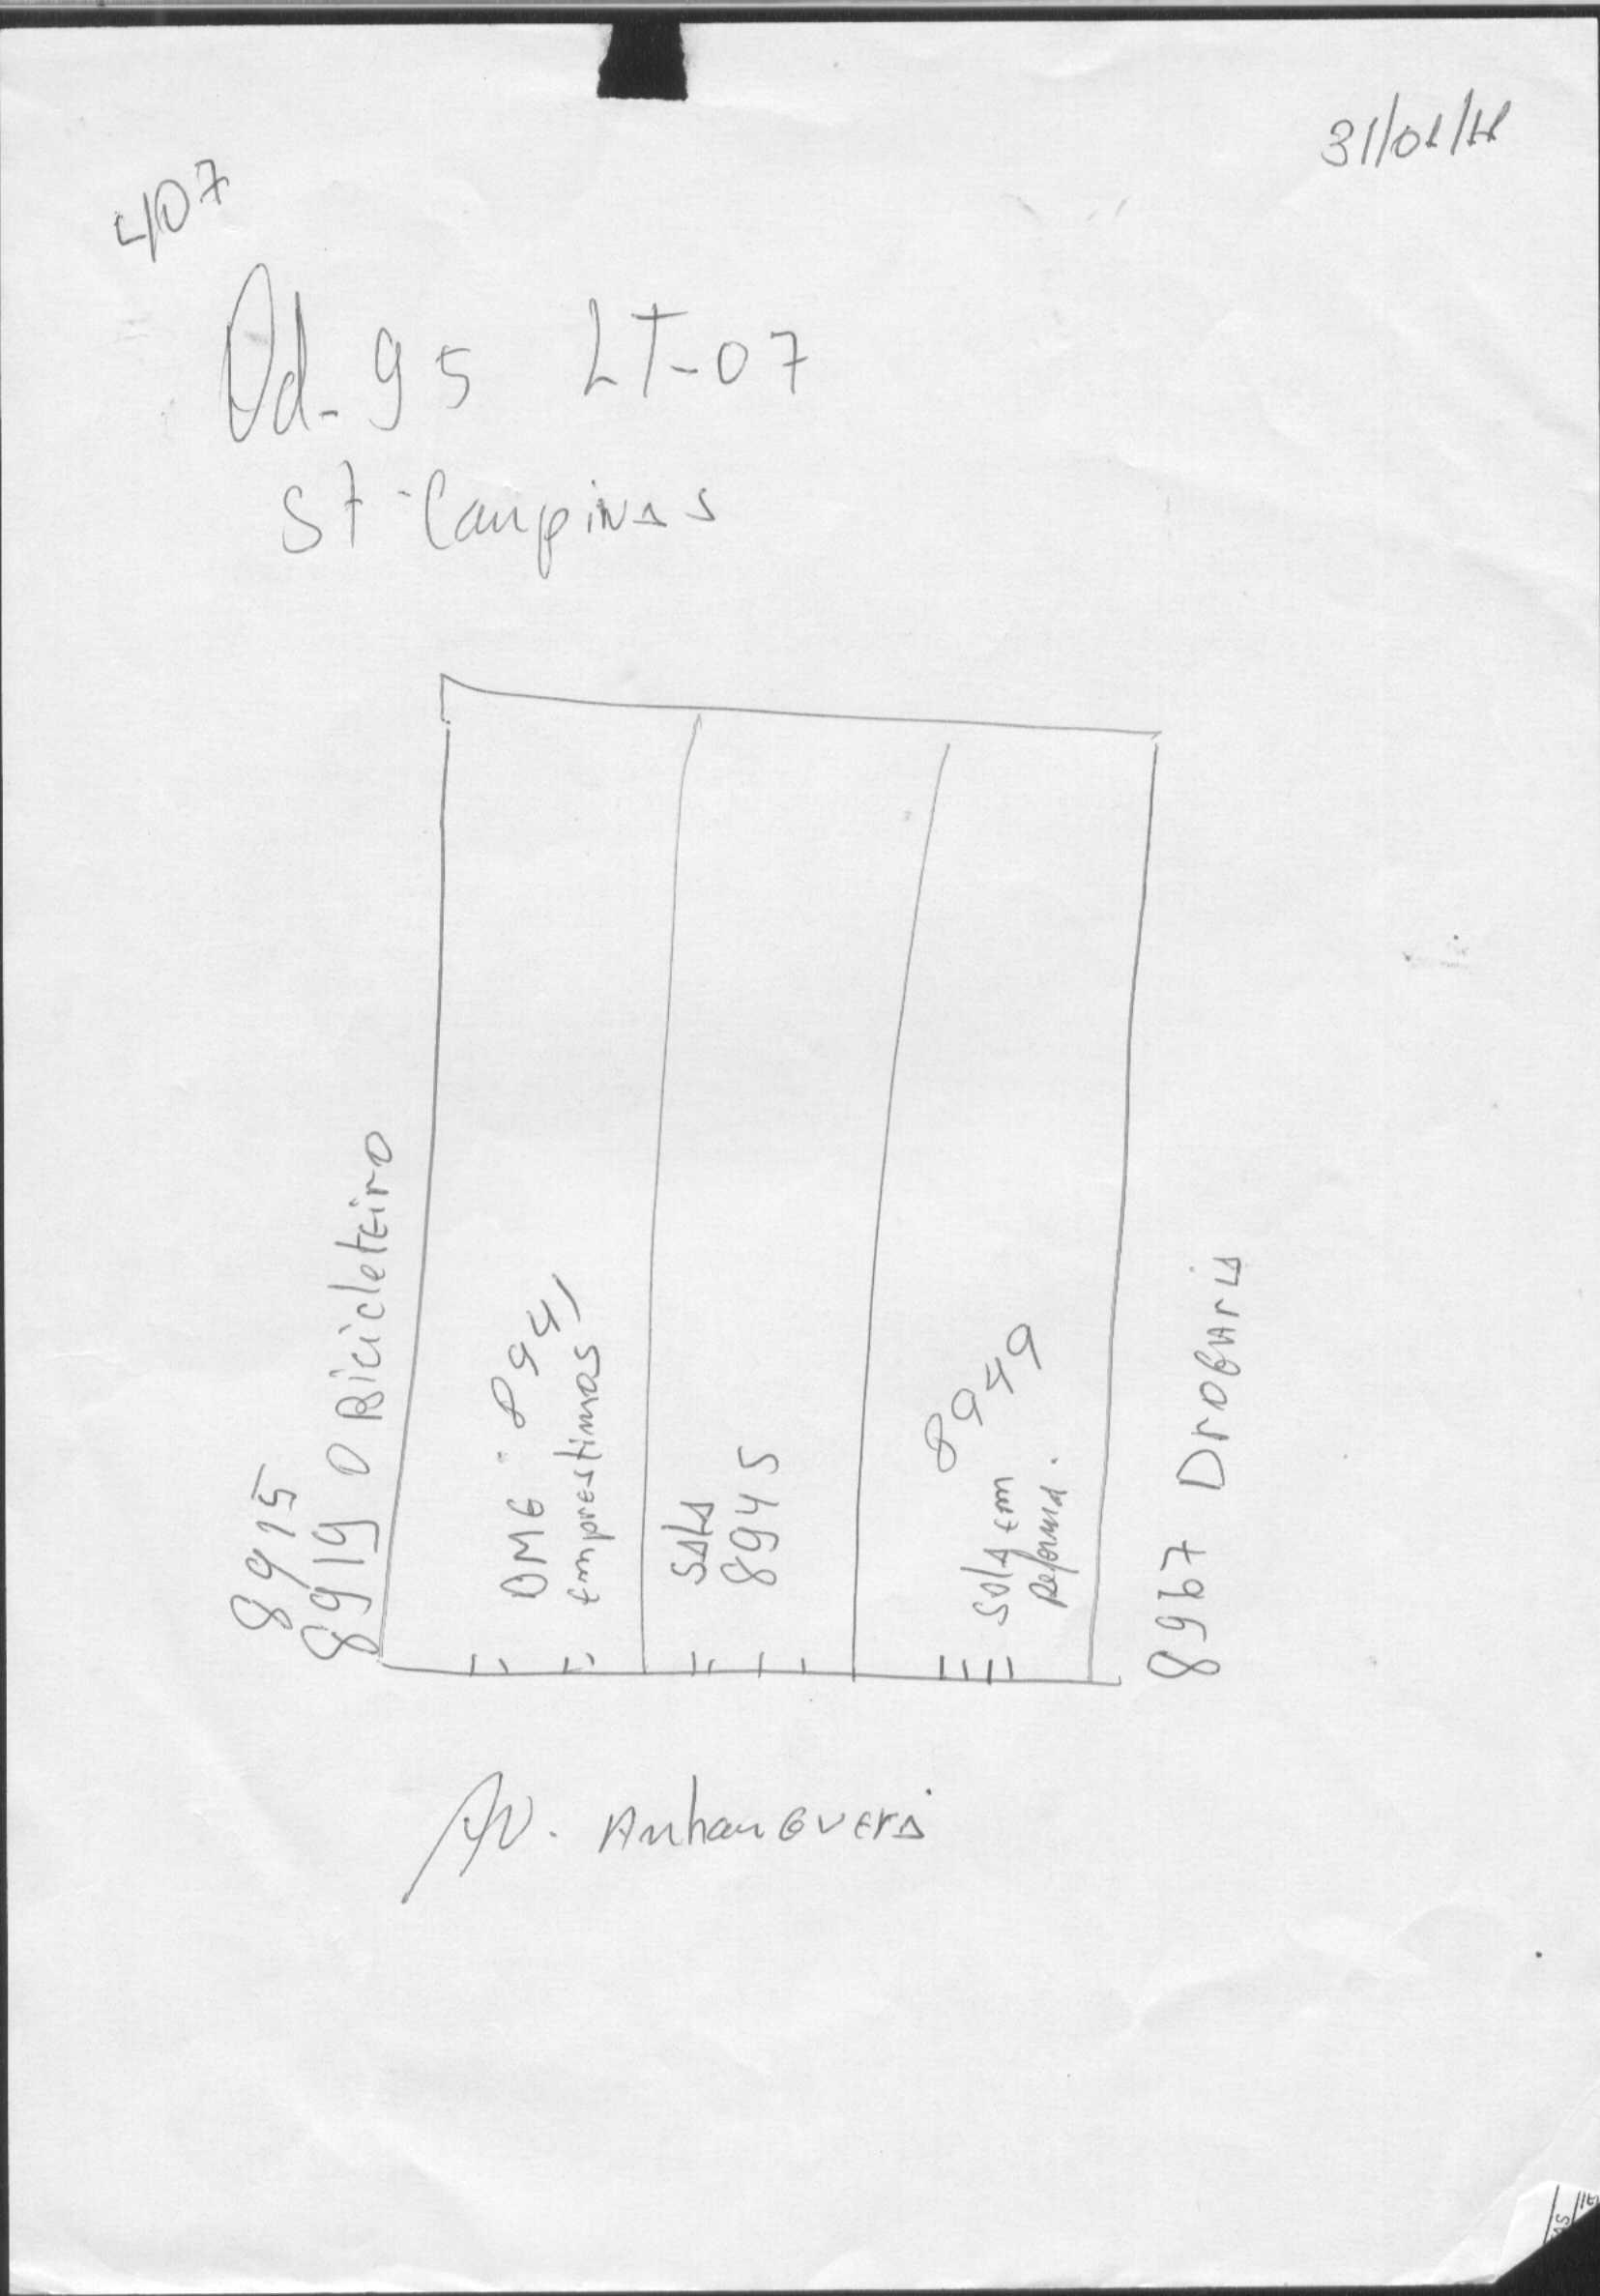 31/01/11
407
Qd-95 LT-07
ST-Campinas
8915
8919 O Bicicleteiro
BMG - 8941
Emprestimos
Sala
8945
8949
Sala Em
Reforma.
8967 Drogaria
Av. Anhanguera